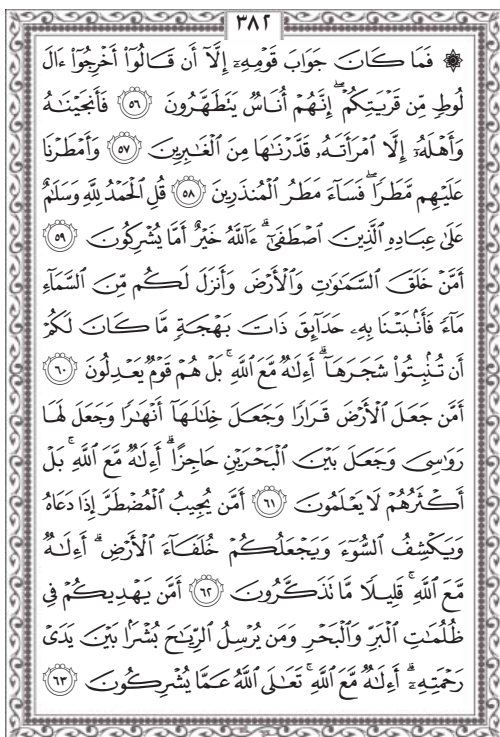 ٣٨٢
۞ فَمَا كَانَ جَوَابَ قَوْمِهِۦٓ إِلَّآ أَن قَالُوٓا۟ أَخْرِجُوٓا۟ ءَالَ
لُوطٍ مِّن قَرْيَتِكُمْ ۖ إِنَّهُمْ أُنَاسٌ يَتَطَهَّرُونَ ٥٦ فَأَنجَيْنَـٰهُ
وَأَهْلَهُۥٓ إِلَّا ٱمْرَأَتَهُۥ قَدَّرْنَـٰهَا مِنَ ٱلْغَـٰبِرِينَ ٥٧ وَأَمْطَرْنَا
عَلَيْهِم مَّطَرًا ۖ فَسَآءَ مَطَرُ ٱلْمُنذَرِينَ ٥٨ قُلِ ٱلْحَمْدُ لِلَّهِ وَسَلَـٰمٌ
عَلَىٰ عِبَادِهِ ٱلَّذِينَ ٱصْطَفَىٰٓ ۗ ءَآللَّهُ خَيْرٌ أَمَّا يُشْرِكُونَ ٥٩
أَمَّنْ خَلَقَ ٱلسَّمَـٰوَٰتِ وَٱلْأَرْضَ وَأَنزَلَ لَكُم مِّنَ ٱلسَّمَآءِ
مَآءً فَأَنۢبَتْنَا بِهِۦ حَدَآئِقَ ذَاتَ بَهْجَةٍ مَّا كَانَ لَكُمْ
أَن تُنۢبِتُوا۟ شَجَرَهَآ ۗ أَءِلَـٰهٌ مَّعَ ٱللَّهِ ۚ بَلْ هُمْ قَوْمٌ يَعْدِلُونَ ٦٠
أَمَّن جَعَلَ ٱلْأَرْضَ قَرَارًا وَجَعَلَ خِلَـٰلَهَآ أَنْهَـٰرًا وَجَعَلَ لَهَا
رَوَٰسِىَ وَجَعَلَ بَيْنَ ٱلْبَحْرَيْنِ حَاجِزًا ۗ أَءِلَـٰهٌ مَّعَ ٱللَّهِ ۚ بَلْ
أَكْثَرُهُمْ لَا يَعْلَمُونَ ٦١ أَمَّن يُجِيبُ ٱلْمُضْطَرَّ إِذَا دَعَاهُ
وَيَكْشِفُ ٱلسُّوٓءَ وَيَجْعَلُكُمْ خُلَفَآءَ ٱلْأَرْضِ ۗ أَءِلَـٰهٌ
مَّعَ ٱللَّهِ ۚ قَلِيلًا مَّا تَذَكَّرُونَ ٦٢ أَمَّن يَهْدِيكُمْ فِى
ظُلُمَـٰتِ ٱلْبَرِّ وَٱلْبَحْرِ وَمَن يُرْسِلُ ٱلرِّيَـٰحَ بُشْرًۢا بَيْنَ يَدَىْ
رَحْمَتِهِۦٓ ۗ أَءِلَـٰهٌ مَّعَ ٱللَّهِ ۚ تَعَـٰلَى ٱللَّهُ عَمَّا يُشْرِكُونَ ٦٣